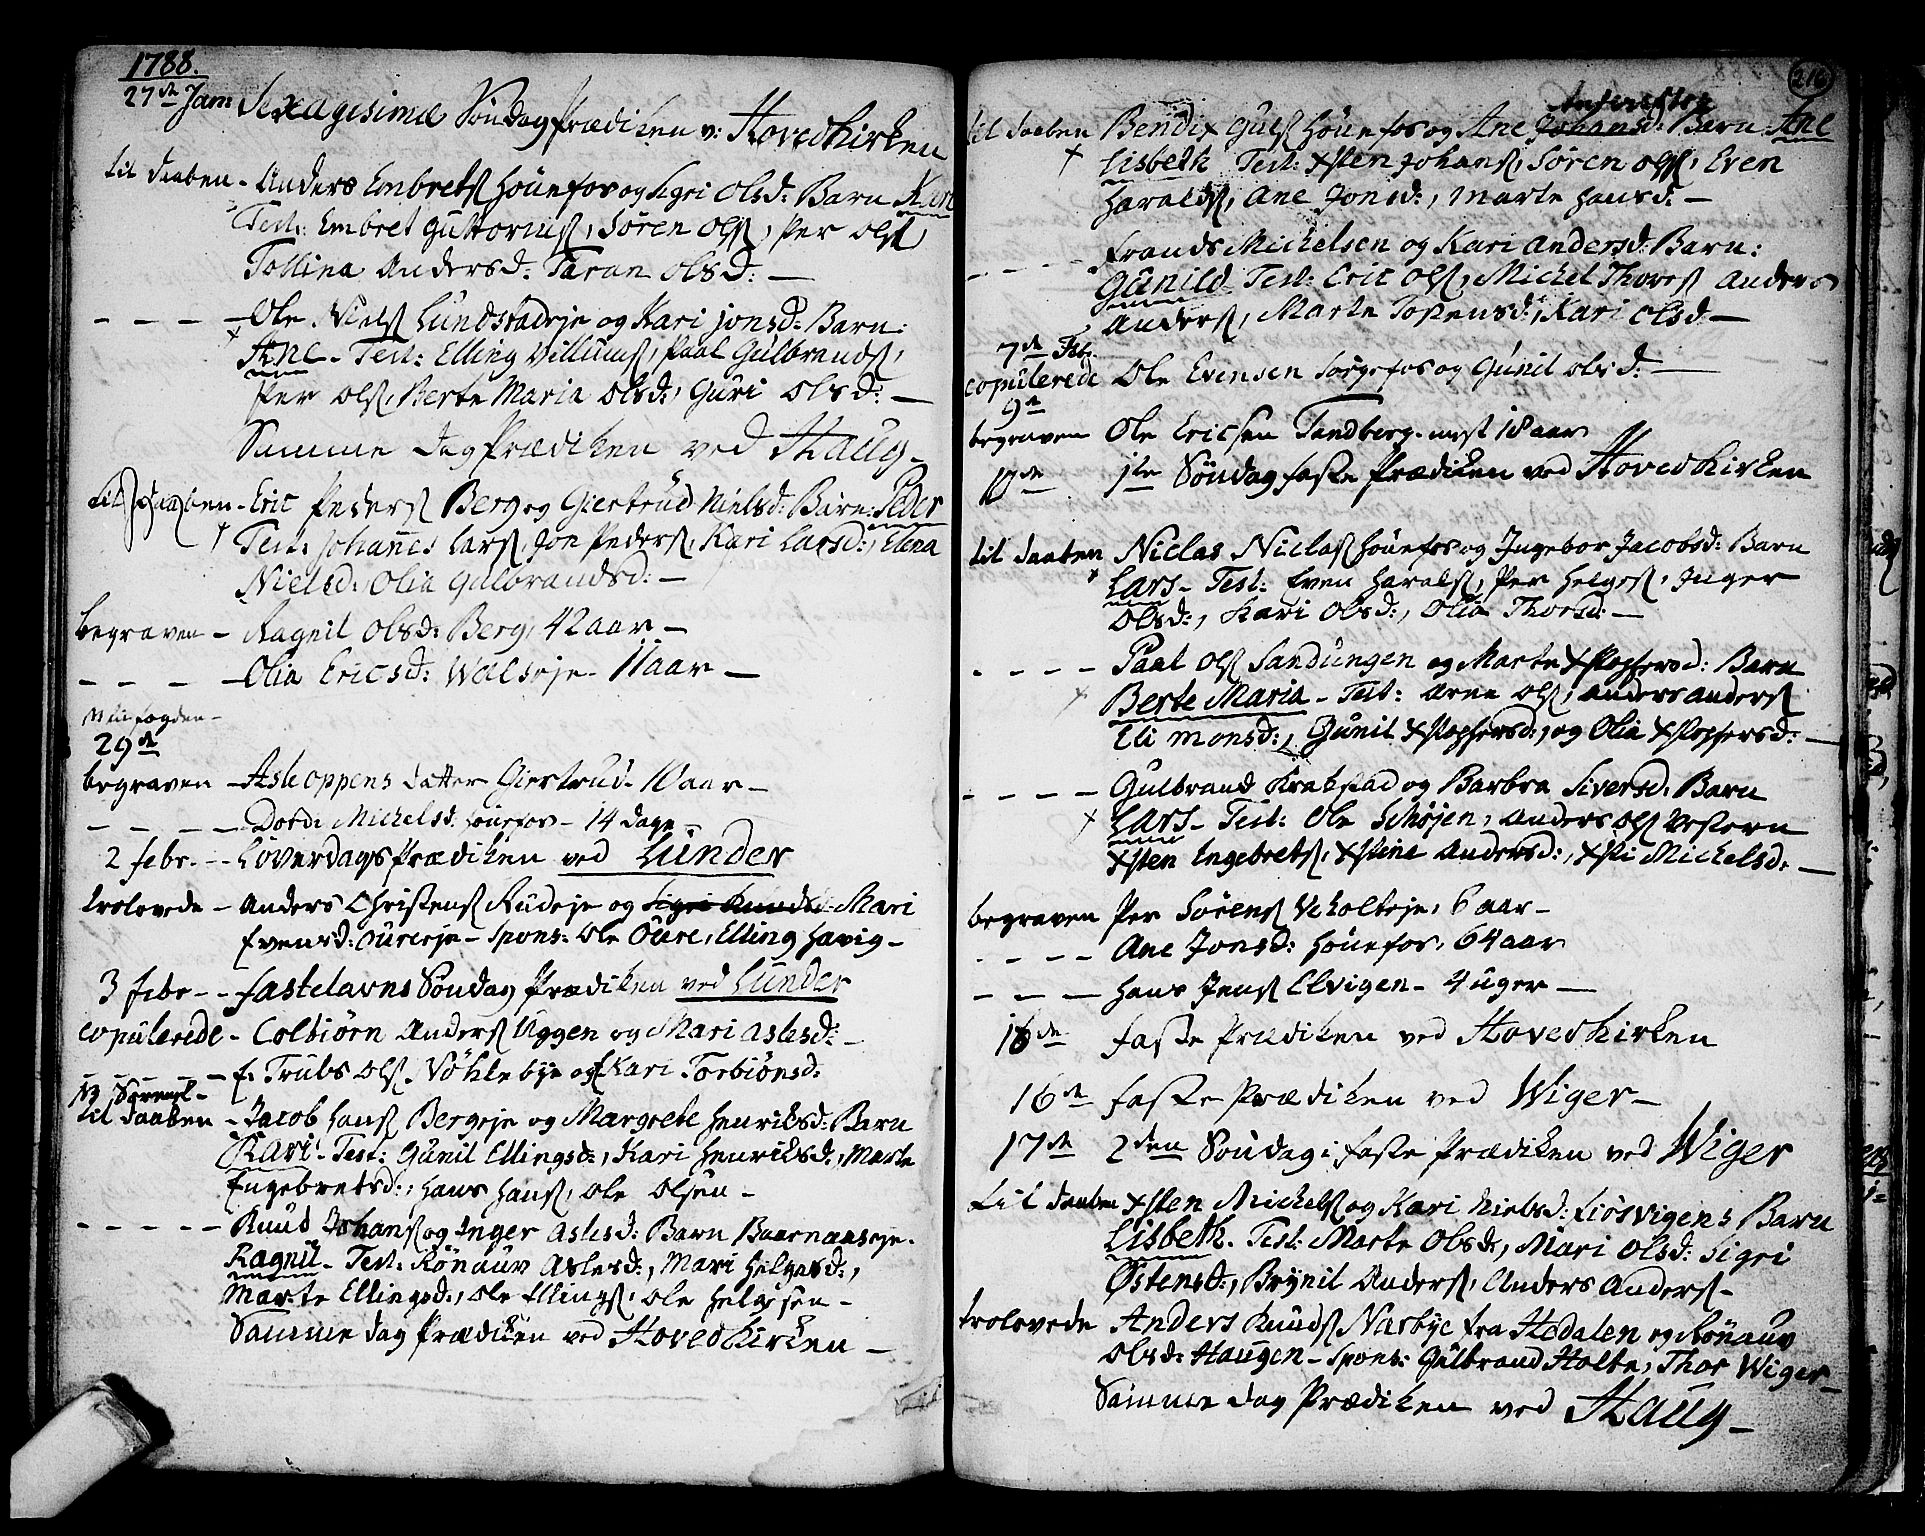 1788.
27de Janr Sexagesima Søndag Prædiken v: Hovedkirken
til daaben - Anders Embretsß hönefos og Sigri Olsd: Barn Kari
Test: Embret Guttormsß, Sören Olsß, Per Olsß
Tollina Andersd: Taran Olsd: —
- - - - Ole Nielsß Lundstadeje og Kari jonsd: Barn:
Ane - Test: Elling Villumsß, Paal Gulbrandsß,
Per Olsß, Berte Maria Olsd:, Guri Olsd: —
Samme dag Prædiken ved Haug -
til daaben - Eric Pedersß Berg og Giertrud Nielsd: Barn: Peder
Test: Johannes Larsß, Jon Pedersß, Kari Larsd:, Elena
Nielsd: Olia Gulbrandsd: —
begraven - Ragnil Olsd: Berg, 42 aar —
- - - - Olia Ericsd: Wælseje - 11 aar —
29de
begraven - Asle Oppens datter Giertrud - 10 aar —
- - - - Dord: Michelsd: hönefos - 14 dage -
2 febr. - - Löverdags Prædiken ved Lunder
trolovede - Anders Christensß Rudeje og Sigri Knudsd: Mari
Evensd: Oureeje - Spons: Ole Oure, Elling Havig -
3 febr - - fastelavns Söndag Prædiken ved Lunder
copulerede - Colbiörn Andersß Uggen og Mari Aslesd: -
- - - - - f. Trubs Olsß Nöklebye og Kari Torbiönsd:
til daaben - Jacob Hansß Bergeje og Margrete Henriksd: Barn
Kari - Test: Gunil Ellingsd:, Kari Henriksd:, Marte
Engebretsd:, Hans Hansß, Ole Olsen -
- - - - - Knud Johansß og Inger Aslesd: Barn Baarnaaseje.
Ragnil - Test: Rönauv Aslesd:, Mari Helgesd:,
Marte Ellingsd:, Ole Ellingsß, Ole Helgesen -
Samme dag Prædiken ved Hovedkirken —
216
til daaben Bendix Gulsß hönefos og Ane Johansd: Barn: Ane
Lisbeth Test: Xsten Johansß, Sören Olsß, Even
Haraldsß, Ane Jonsd:, Marte Hansd: —
- - - - Frands Michelsen og Kari Andersd: Barn:
Gunild Test: Eric Olsß, Michel Thorsß Anders
Andersß, Marte Tostensd:, Kari Olsd —
7de Feb:
copulerede Ole Evensen Sörgefos og Gunil Olsd: —
9de
begraven Ole Ericsen Tandberg - næst 18 aar
10de 1ste Söndag faste Prædiken ved Hovedkirken
til daaben Niclas Niclasß hönefos og Ingebor Jacobsd: Barn
Lars - Test: Even Haralsß, Per Helgesß, Inger
Olsd:, Kari Olsd:, Olia Thorsd: —
- - - - Paal Olsß Sandungen og Marte Xstophersd: Barn
Berte Maria - Test: Arne Olsß, Anders Andersß
Eli Monsd:, Gunil Xstophersd:, og Olia Xstophersd: —
- - - - Gulbrand Krabstad og Barbra Siversd: Barn
Lars - Test: Ole Schöjen, Anders Olsß Vestern
Xsten Engebretsß, Xstine Andersd:, Xsti Michelsd: —
begraven Per Sörensß Veholteje, 6 aar -
- - - - Ane Jonsd: hönefos, 64 aar
- - - Hans Jensß Elvigen - 4 uger —
faste Prædiken ved Hovedkirken
16de faste Prædiken ved Wiger -
17de 2den Söndag i faste Prædiken ved Wiger
til daaben Xsten Michelsß og Kari Nielsd: Liösvigens Barn
Lisbeth. Test: Marte Olsd:, Mari Olsd: Sigri
Östensd:, Brynil Andersß, Anders Andersß -
trolovede Anders Knudsß Narbye fra Hedalen og Rönauv
Olsd: Haugen - Spons: Gulbrand Holte, Thor Wiger -
Samme dag Prædiken ved Haug -